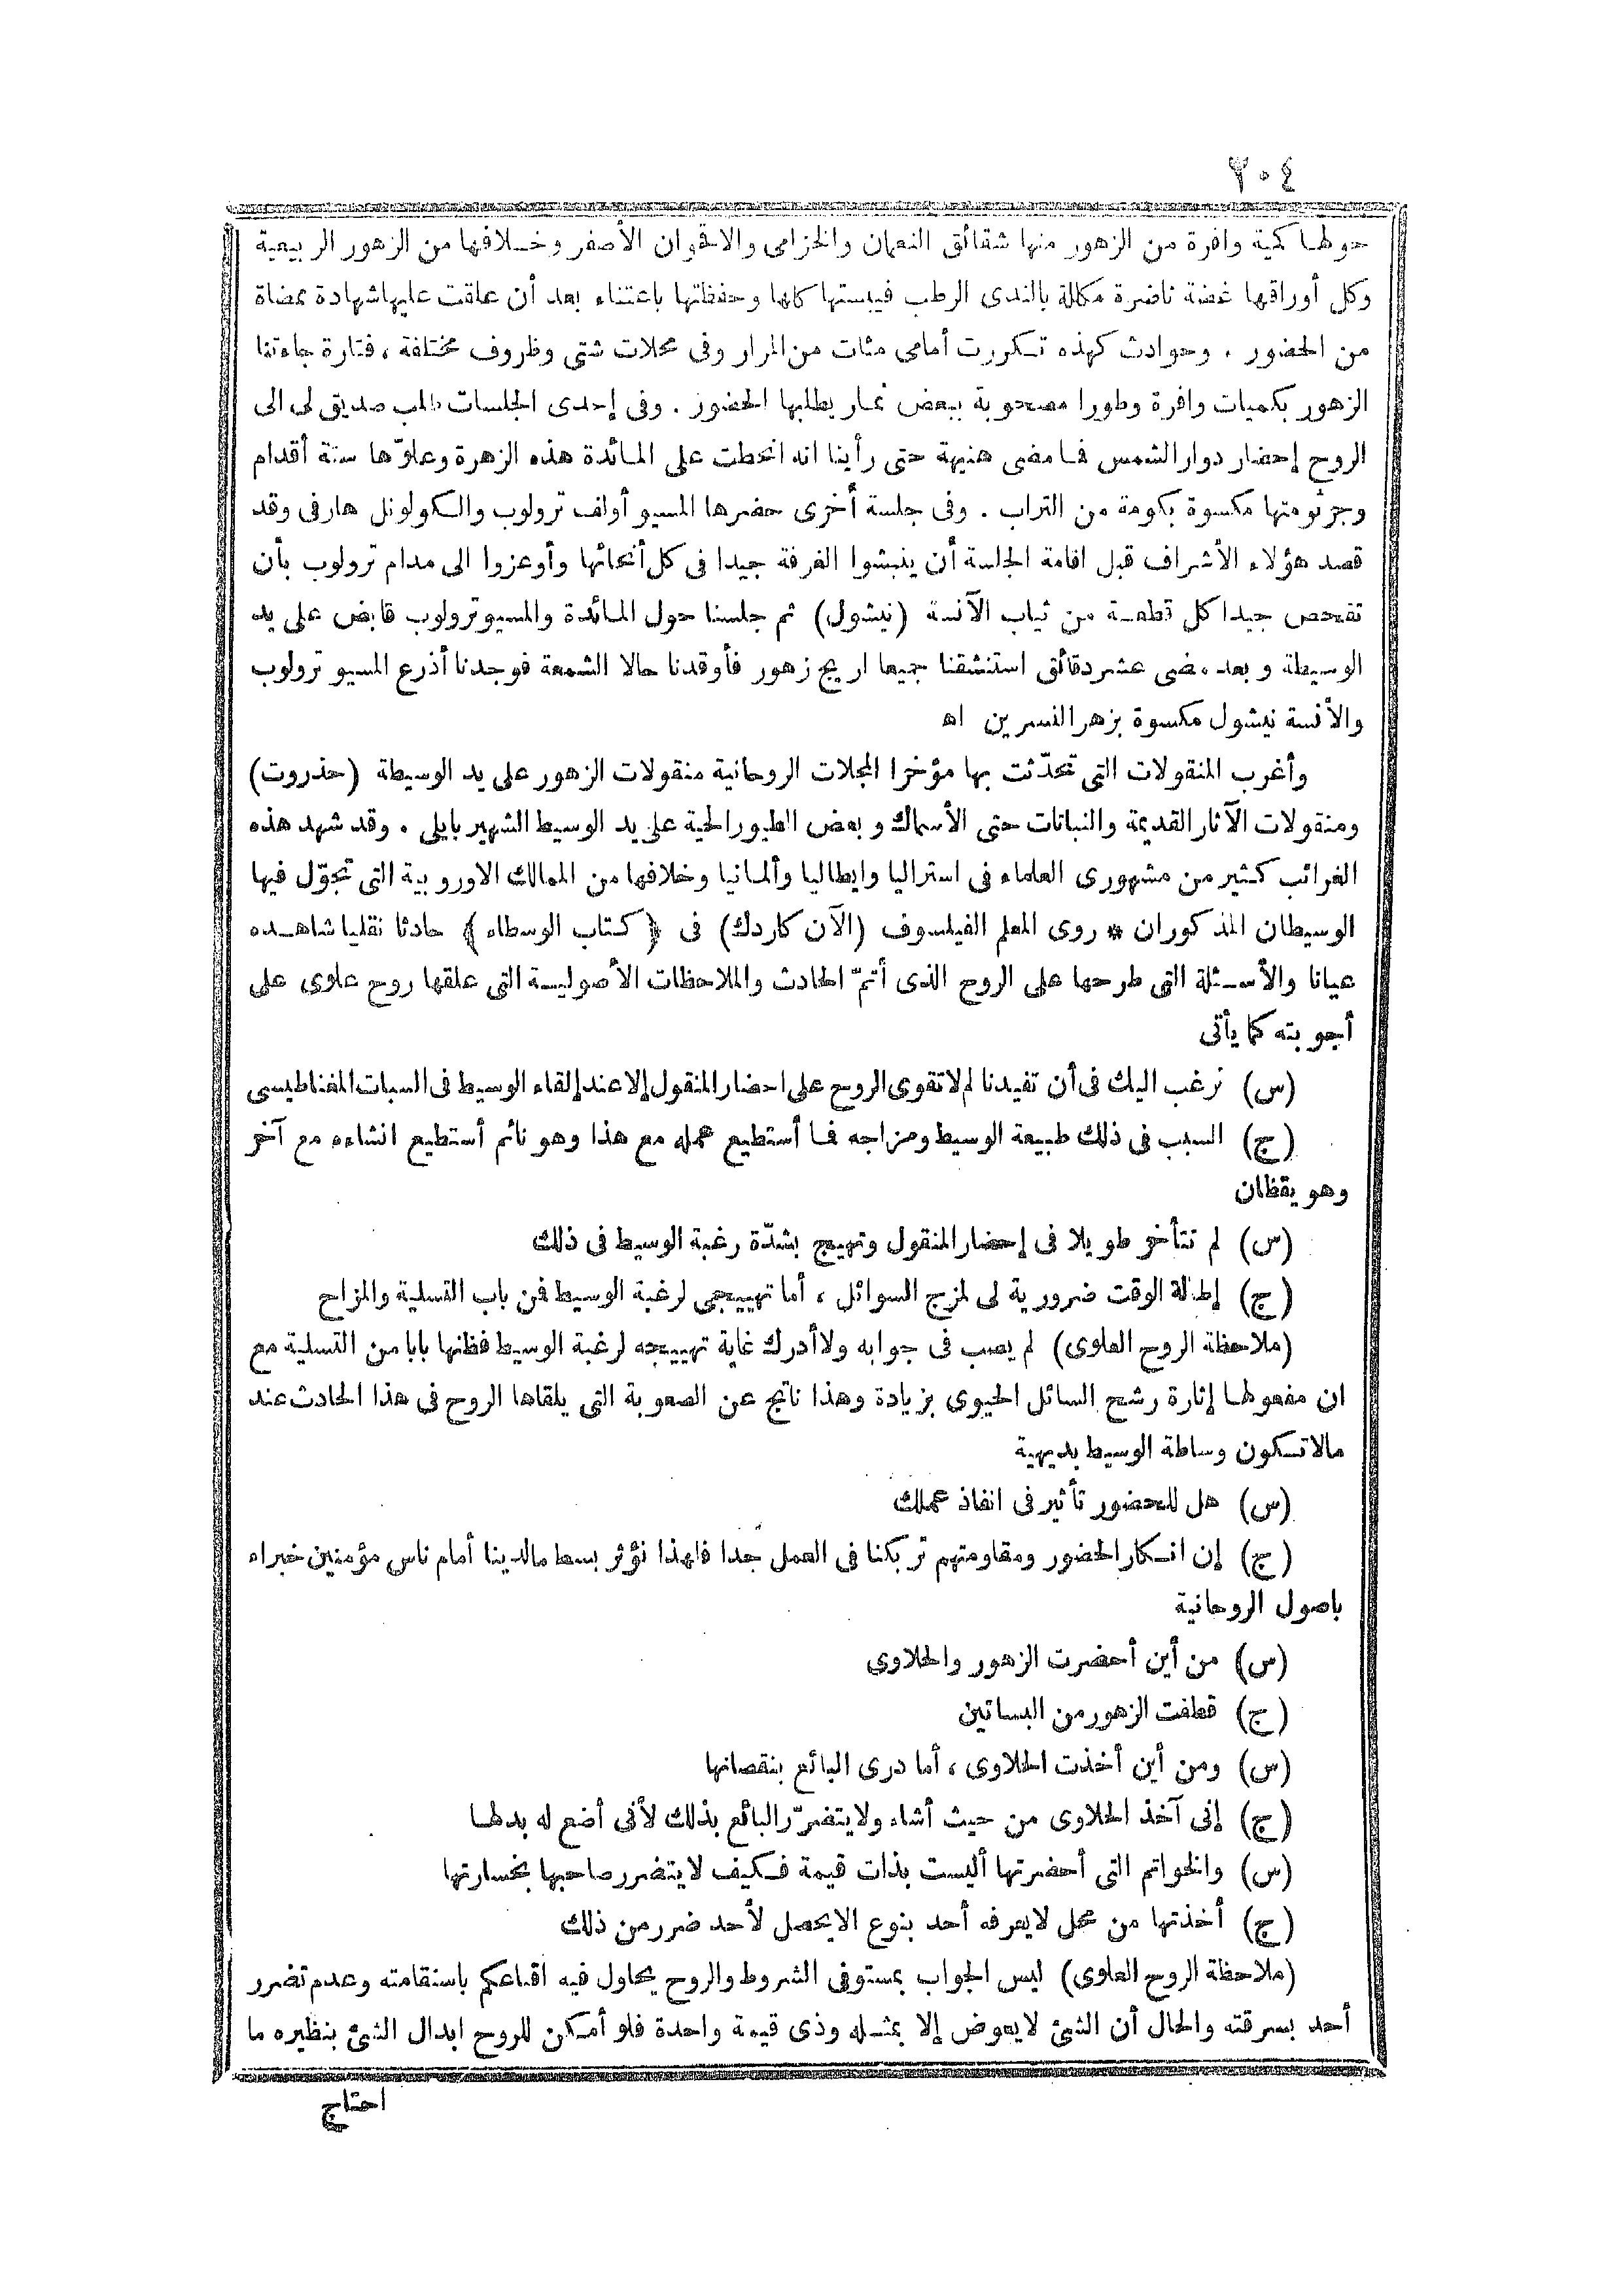 ٢٠٤
حولها كمية وافرة من الزهور منها شقائق النعمان والخزامى والاقحوان الأصفر وخلافها من الزهور الربيعية
وكل أوراقها غضة ناضرة مكللة بالندى الرطب فيبستها كلها وحفظتها باعتناء بعد أن علقت عليها شهادة ممضاة
من الحضور . وحوادث كهذه تكررت أمامى مئات من المرار وفى محلات شتى وظروف مختلفة ، فتارة جاءتنا
الزهور بكميات وافرة وطورا مصحوبة ببعض ثمار يطلبها الحضور . وفى إحدى الجلسات طلب صديق لى الى
الروح إحضار دوار الشمس فما مضى هنيهة حتى رأينا انه انحطت على المائدة هذه الزهرة وعلوّها ستة أقدام
وجرثومتها مكسوة بكومة من التراب . وفى جلسة أخرى حضرها المسيو أولف ترولوب والكولونل هارفى وقد
قصد هؤلاء الأشراف قبل اقامة الجلسة أن ينبشوا الغرفة جيدا فى كل أنحائها وأوعزوا الى مدام ترولوب بأن
تفحص جيدا كل قطعة من ثياب الآنسة (نيشول) ثم جلسنا حول المائدة والمسيو ترولوب قابض على يد
الوسيطة وبعد مضى عشر دقائق استنشقنا جميعا اريج زهور فأوقدنا حالا الشمعة فوجدنا أذرع المسيو ترولوب
والأنسة نيشول مكسوة بزهر النسرين اه
وأغرب المنقولات التى تحدّثت بها مؤخرا المجلات الروحانية منقولات الزهور على يد الوسيطة (حذروت)
ومنقولات الآثار القديمة والنباتات حتى الأسماك وبعض الطيور الحية على يد الوسيط الشهير بايلى . وقد شهد هذه
الغرائب كثير من مشهورى العلماء فى استراليا وايطاليا وألمانيا وخلافها من الممالك الاوروبية التى تجوّل فيها
الوسيطان المذكوران * روى المعلم الفيلسوف (الآن كاردك) فى ﴿كتاب الوسطاء﴾ حادثا نقليا شاهده
عيانا والأسئلة التى طرحها على الروح الذى أتمّ الحادث والملاحظات الأصولية التى علقها روح علوى على
أجوبته كما يأتى
(س) نرغب اليك فى أن تفيدنا لم لا تقوى الروح على احضار المنقول إلا عند إلقاء الوسيط فى السبات المغناطيسى
(ج) السبب فى ذلك طبيعة الوسيط ومزاجه فما أستطيع عمله مع هذا وهو نائم أستطيع انشاءه مع آخر
وهو يقظان
(س) لم تتأخر طويلا فى إحضار المنقول وتهييج بشدّة رغبة الوسيط فى ذلك
(ج) إطالة الوقت ضرورية لى لمزج السوائل ، أما تهييجى لرغبة الوسيط فمن باب التسلية والمزاح
(ملاحظة الروح العلوى) لم يصب فى جوابه ولا أدرك غاية تهييجه لرغبة الوسيط فظنها بابا من التسلية مع
ان مفعولها إثارة رشح السائل الحيوى بزيادة وهذا ناتج عن الصعوبة التى يلقاها الروح فى هذا الحادث عند
مالا تكون وساطة الوسيط بديهية
(س) هل للحضور تأثير فى انفاذ عملك
(ج) إن انكار الحضور ومقاومتهم تربكنا فى العمل جدا فلهذا نؤثر بسط مالدينا أمام ناس مؤمنين خبراء
باصول الروحانية
(س) من أين أحضرت الزهور والحلاوى
(ج) قطفت الزهور من البساتين
(س) ومن أين أخذت الحلاوى ، أما درى البائع بنقصانها
(ج) إنى آخذ الحلاوى من حيث أشاء ولا يتضرّر البائع بذلك لأنى أضع له بدلها
(س) والخواتم التى أحضرتها أليست بذات قيمة فكيف لا يتضرر صاحبها بخسارتها
(ج) أخذتها من محل لا يعرفه أحد بنوع الا يحصل لأحد ضرر من ذلك
(ملاحظة الروح العلوى) ليس الجواب بمستوفى الشروط والروح يحاول فيه اقناعكم باستقامته وعدم تضرر
أحد بسرقته والحال أن الشئ لا يعوض إلا بمثله وذى قيمة واحدة فلو أمكن للروح ابدال الشئ بنظيره ما
احتاج